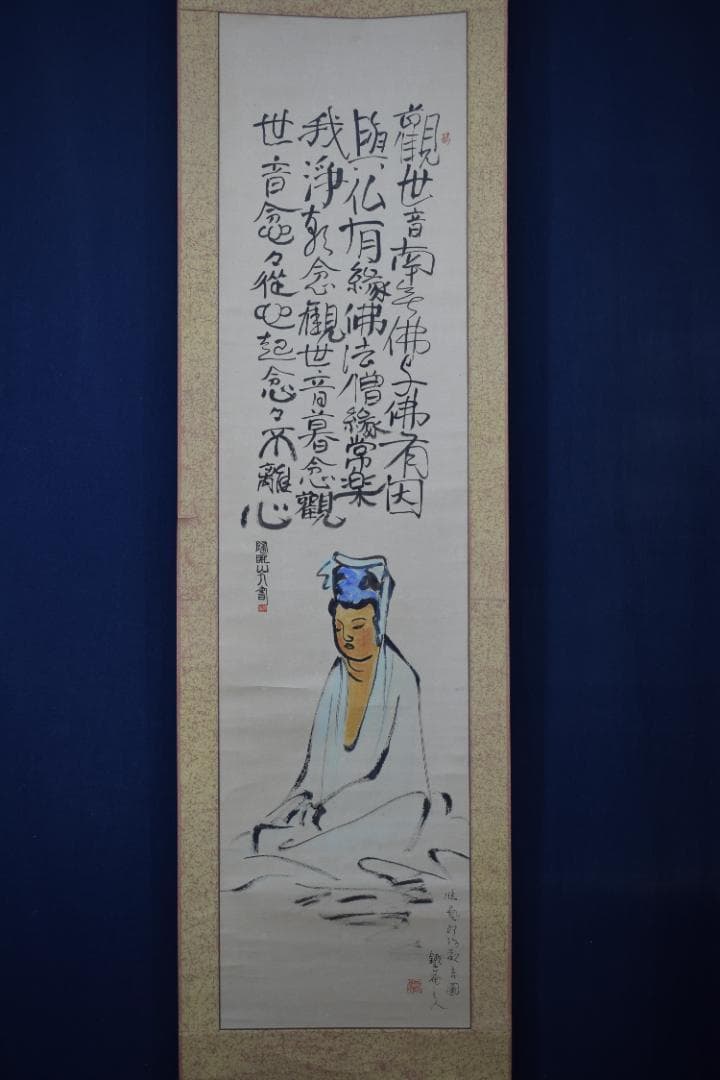 觀世音南无佛与佛有因
與仏有緣佛法僧緣常楽
我淨朝念觀世音暮念觀
世音念々從心起念々不離心
山人書
觀音圖